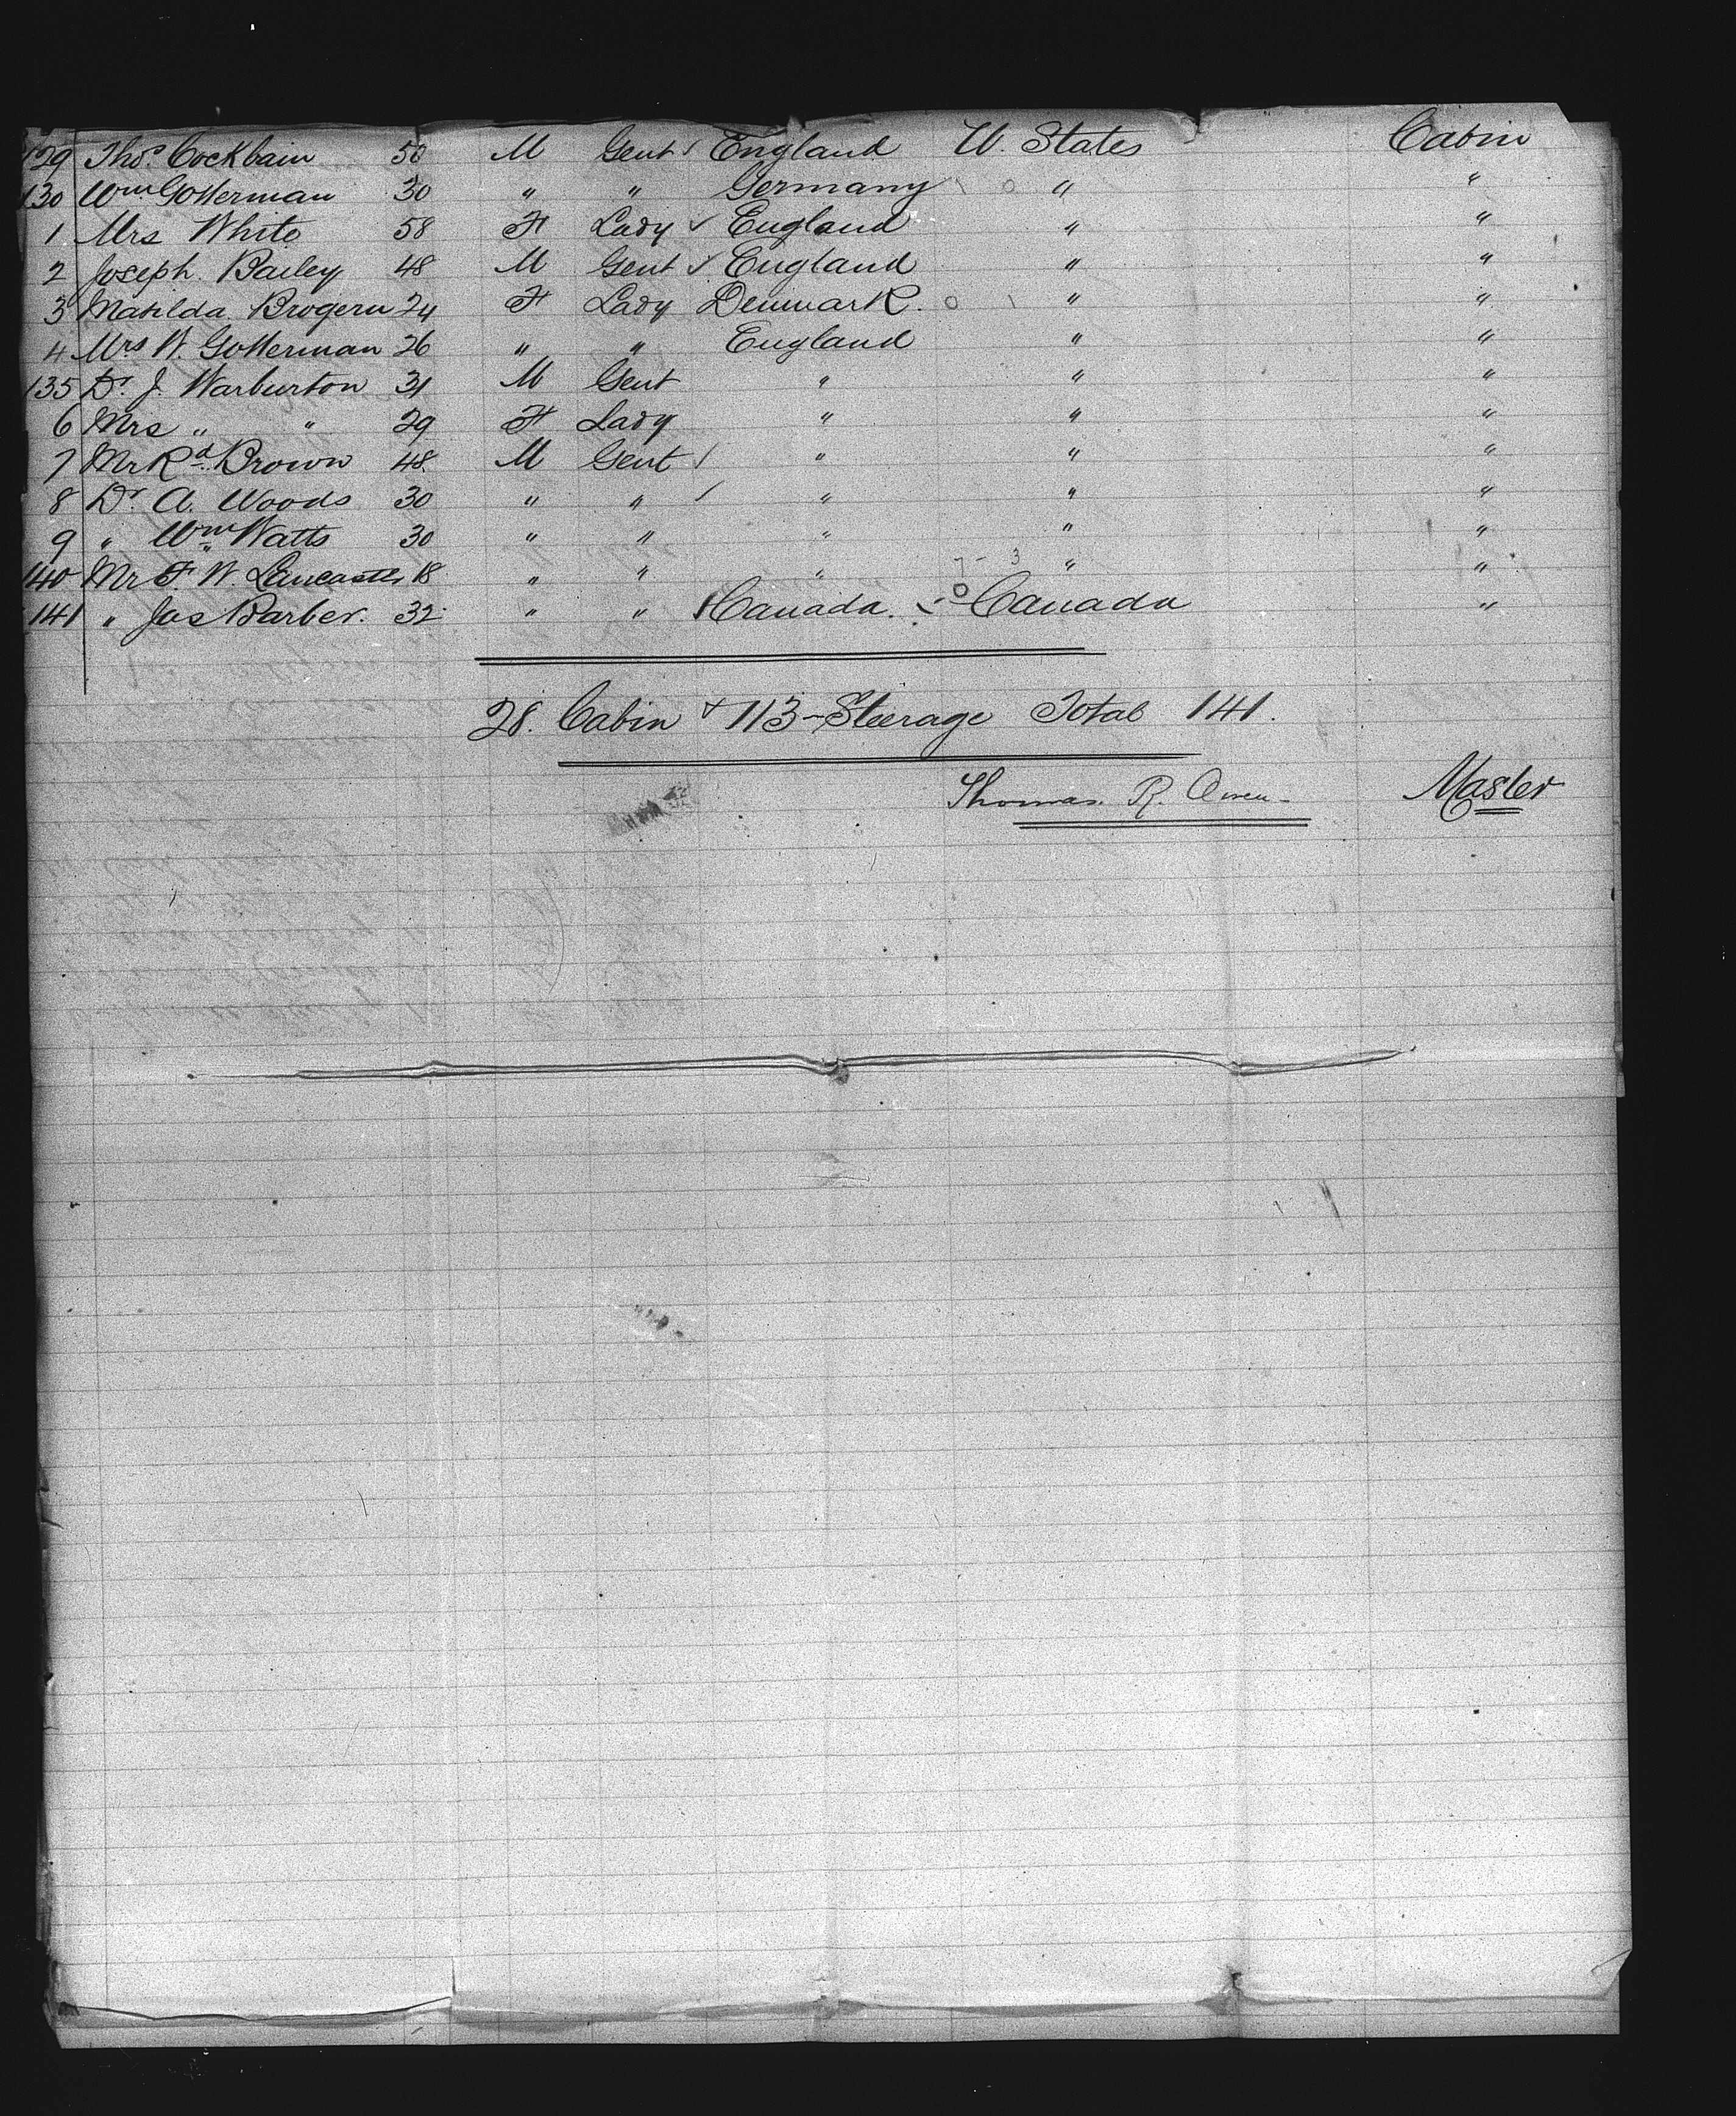 129 Thos. Cockbain 50 M Gent England U. States Cabin
130 Wm Gotterman 30 " " Germany " "
1 Mrs White 58 F Lady England " "
2 Joseph Bailey 48 M Gent England " "
3 Matilda Brogern 24 F Lady Denmark. " "
4 Mrs W. Gotterman 26 " " England " "
135 Dr. J. Warburton 31 M Gent " " "
6 Mrs " " 29 F Lady " " "
7 Mr Rd. Brown 48. M Gent " " "
8 Dr A. Woods 30 " " " " "
9 " Wm Watts 30 " " " " "
140 Mr F. W. Lancaster 18 " " " " "
141 " Jas Barber. 32 " " Canada. Canada "
28. Cabin + 113 - Steerage Total 141.
Thomas. R. Owen - Master